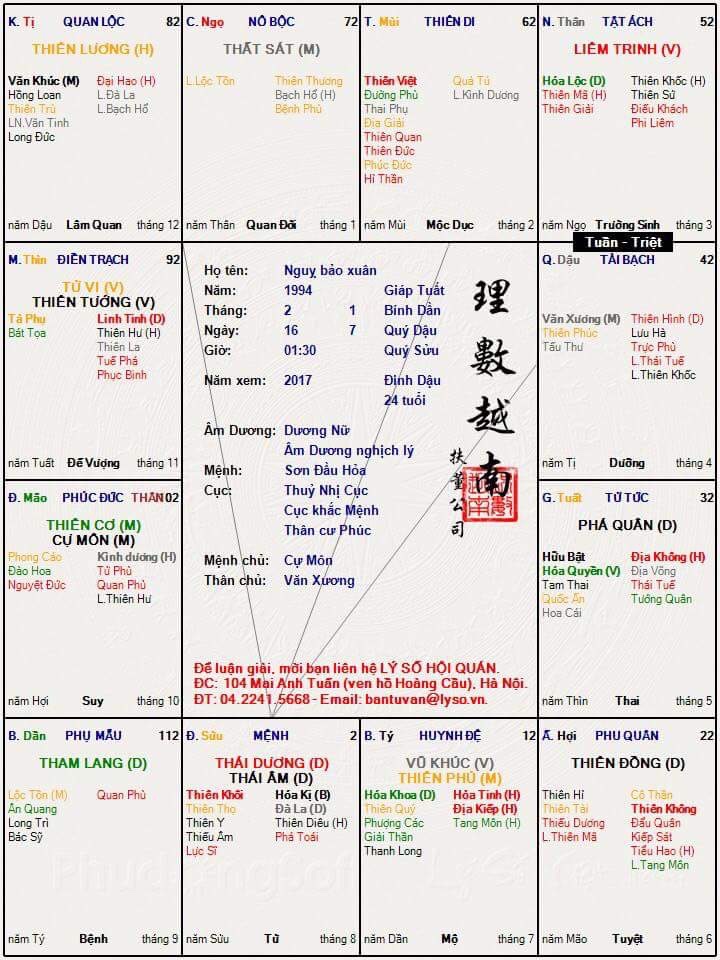 K. Tị QUAN LỘC 82
THIÊN LƯƠNG (H)
Văn Khúc (M) Đại Hao (H)
Hồng Loan L.Đà La
Thiên Trù L.Bạch Hổ
LN.Văn Tinh
Long Đức
năm Dậu Lâm Quan tháng 12
C. Ngọ NÔ BỘC 72
THẤT SÁT (M)
L.Lộc Tồn Thiên Thương
Bạch Hổ (H)
Bệnh Phù
năm Thân Quan Đới tháng 1
T. Mùi THIÊN DI 62
Thiên Việt Quả Tú
Đường Phù L.Kình Dương
Thai Phụ
Địa Giải
Thiên Quan
Thiên Đức
Phúc Đức
Hỉ Thần
năm Mùi Mộc Dục tháng 2
N. Thân TẬT ÁCH 52
LIÊM TRINH (V)
Hóa Lộc (D) Thiên Khốc (H)
Thiên Mã (H) Thiên Sứ
Thiên Giải Điếu Khách
Phi Liêm
năm Ngọ Trường Sinh tháng 3
Tuần - Triệt
M. Thìn ĐIỀN TRẠCH 92
TỬ VI (V)
THIÊN TƯỚNG (V)
Tả Phụ Linh Tinh (D)
Bát Tọa Thiên Hư (H)
Thiên La
Tuế Phá
Phục Binh
năm Tuất Đế Vượng tháng 11
Họ tên: Nguỵ bảo xuân
Năm: 1994 Giáp Tuất
Tháng: 2 1 Bính Dần
Ngày: 16 7 Quý Dậu
Giờ: 01:30 Quý Sửu
Năm xem: 2017 Đinh Dậu
24 tuổi
Âm Dương: Dương Nữ
Âm Dương nghịch lý
Mệnh: Sơn Đầu Hỏa
Cục: Thuỷ Nhị Cục
Cục khắc Mệnh
Thân cư Phúc
Mệnh chủ: Cự Môn
Thân chủ: Văn Xương
理數越南
扶董公司
Để luận giải, mời bạn liên hệ LÝ SỐ HỘI QUÁN.
ĐC: 104 Mai Anh Tuấn (ven hồ Hoàng Cầu), Hà Nội.
ĐT: 04.2241.5668 - Email: bantuvan@lyso.vn.
Q. Dậu TÀI BẠCH 42
Văn Xương (M) Thiên Hình (D)
Thiên Phúc Lưu Hà
Tấu Thư Trực Phù
L.Thái Tuế
L.Thiên Khốc
năm Tị Dưỡng tháng 4
Đ. Mão PHÚC ĐỨC THÂN 102
THIÊN CƠ (M)
CỰ MÔN (M)
Phong Cáo Kình dương (H)
Đào Hoa Tử Phù
Nguyệt Đức Quan Phù
L.Thiên Hư
năm Hợi Suy tháng 10
G. Tuất TỬ TỨC 32
PHÁ QUÂN (D)
Hữu Bật Địa Không (H)
Hóa Quyền (V) Địa Võng
Tam Thai Thái Tuế
Quốc Ấn Tướng Quân
Hoa Cái
năm Thìn Thai tháng 5
B. Dần PHỤ MẪU 112
THAM LANG (D)
Lộc Tồn (M) Quan Phủ
Ân Quang
Long Trì
Bác Sỹ
năm Tý Bệnh tháng 9
Đ. Sửu MỆNH 2
THÁI DƯƠNG (D)
THÁI ÂM (D)
Thiên Khôi Hóa Kị (B)
Thiên Thọ Đà La (D)
Thiên Y Thiên Diêu (H)
Thiếu Âm Phá Toái
Lực Sĩ
năm Sửu Tử tháng 8
B. Tý HUYNH ĐỆ 12
VŨ KHÚC (V)
THIÊN PHỦ (M)
Hóa Khoa (D) Hỏa Tinh (H)
Thiên Quý Địa Kiếp (H)
Phượng Các Tang Môn (H)
Giải Thần
Thanh Long
năm Dần Mộ tháng 7
Ấ. Hợi PHU QUÂN 22
THIÊN ĐỒNG (D)
Thiên Hỉ Cô Thần
Thiên Tài Thiên Không
Thiếu Dương Đẩu Quân
L.Thiên Mã Kiếp Sát
Tiểu Hao (H)
L.Tang Môn
năm Mão Tuyệt tháng 6